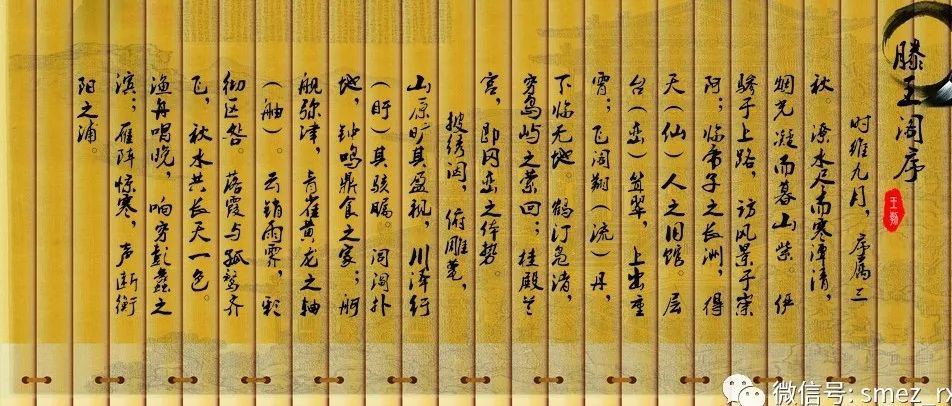 滕王阁序
王勃
时维九月，序属三
秋。潦水尽而寒潭清，
烟光凝而暮山紫。俨
骖于上路，访风景于崇
阿；临帝子之长洲，得
天（仙）人之旧馆。层
台（峦）耸翠，上出重
霄；飞阁翔（流）丹，
下临无地。鹤汀凫渚，
穷岛屿之萦回；桂殿兰
宫，即冈峦之体势。
披绣闼，俯雕甍，
山原旷其盈视，川泽纡
（盱）其骇瞩。闾阎扑
地，钟鸣鼎食之家；舸
舰弥津，青雀黄龙之轴
（舳）。云销雨霁，彩
彻区明。落霞与孤鹜齐
飞，秋水共长天一色。
渔舟唱晚，响穷彭蠡之
滨；雁阵惊寒，声断衡
阳之浦。
微信号: